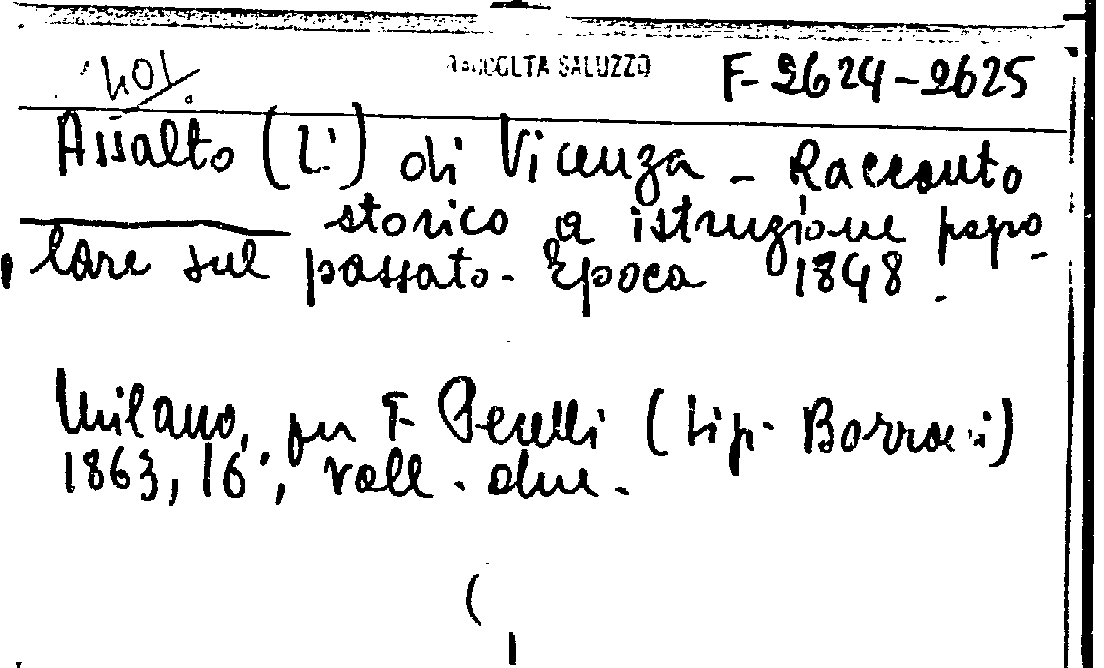 401.
RACCOLTA SALUZZO F-2624-2625
Assalto (L') di Vicenza - Racconto
storico a istruzione popo-
lare sul passato - Epoca 1848.
Milano, per F. Perelli (tip. Borroni)
1863, 16°, voll. due.